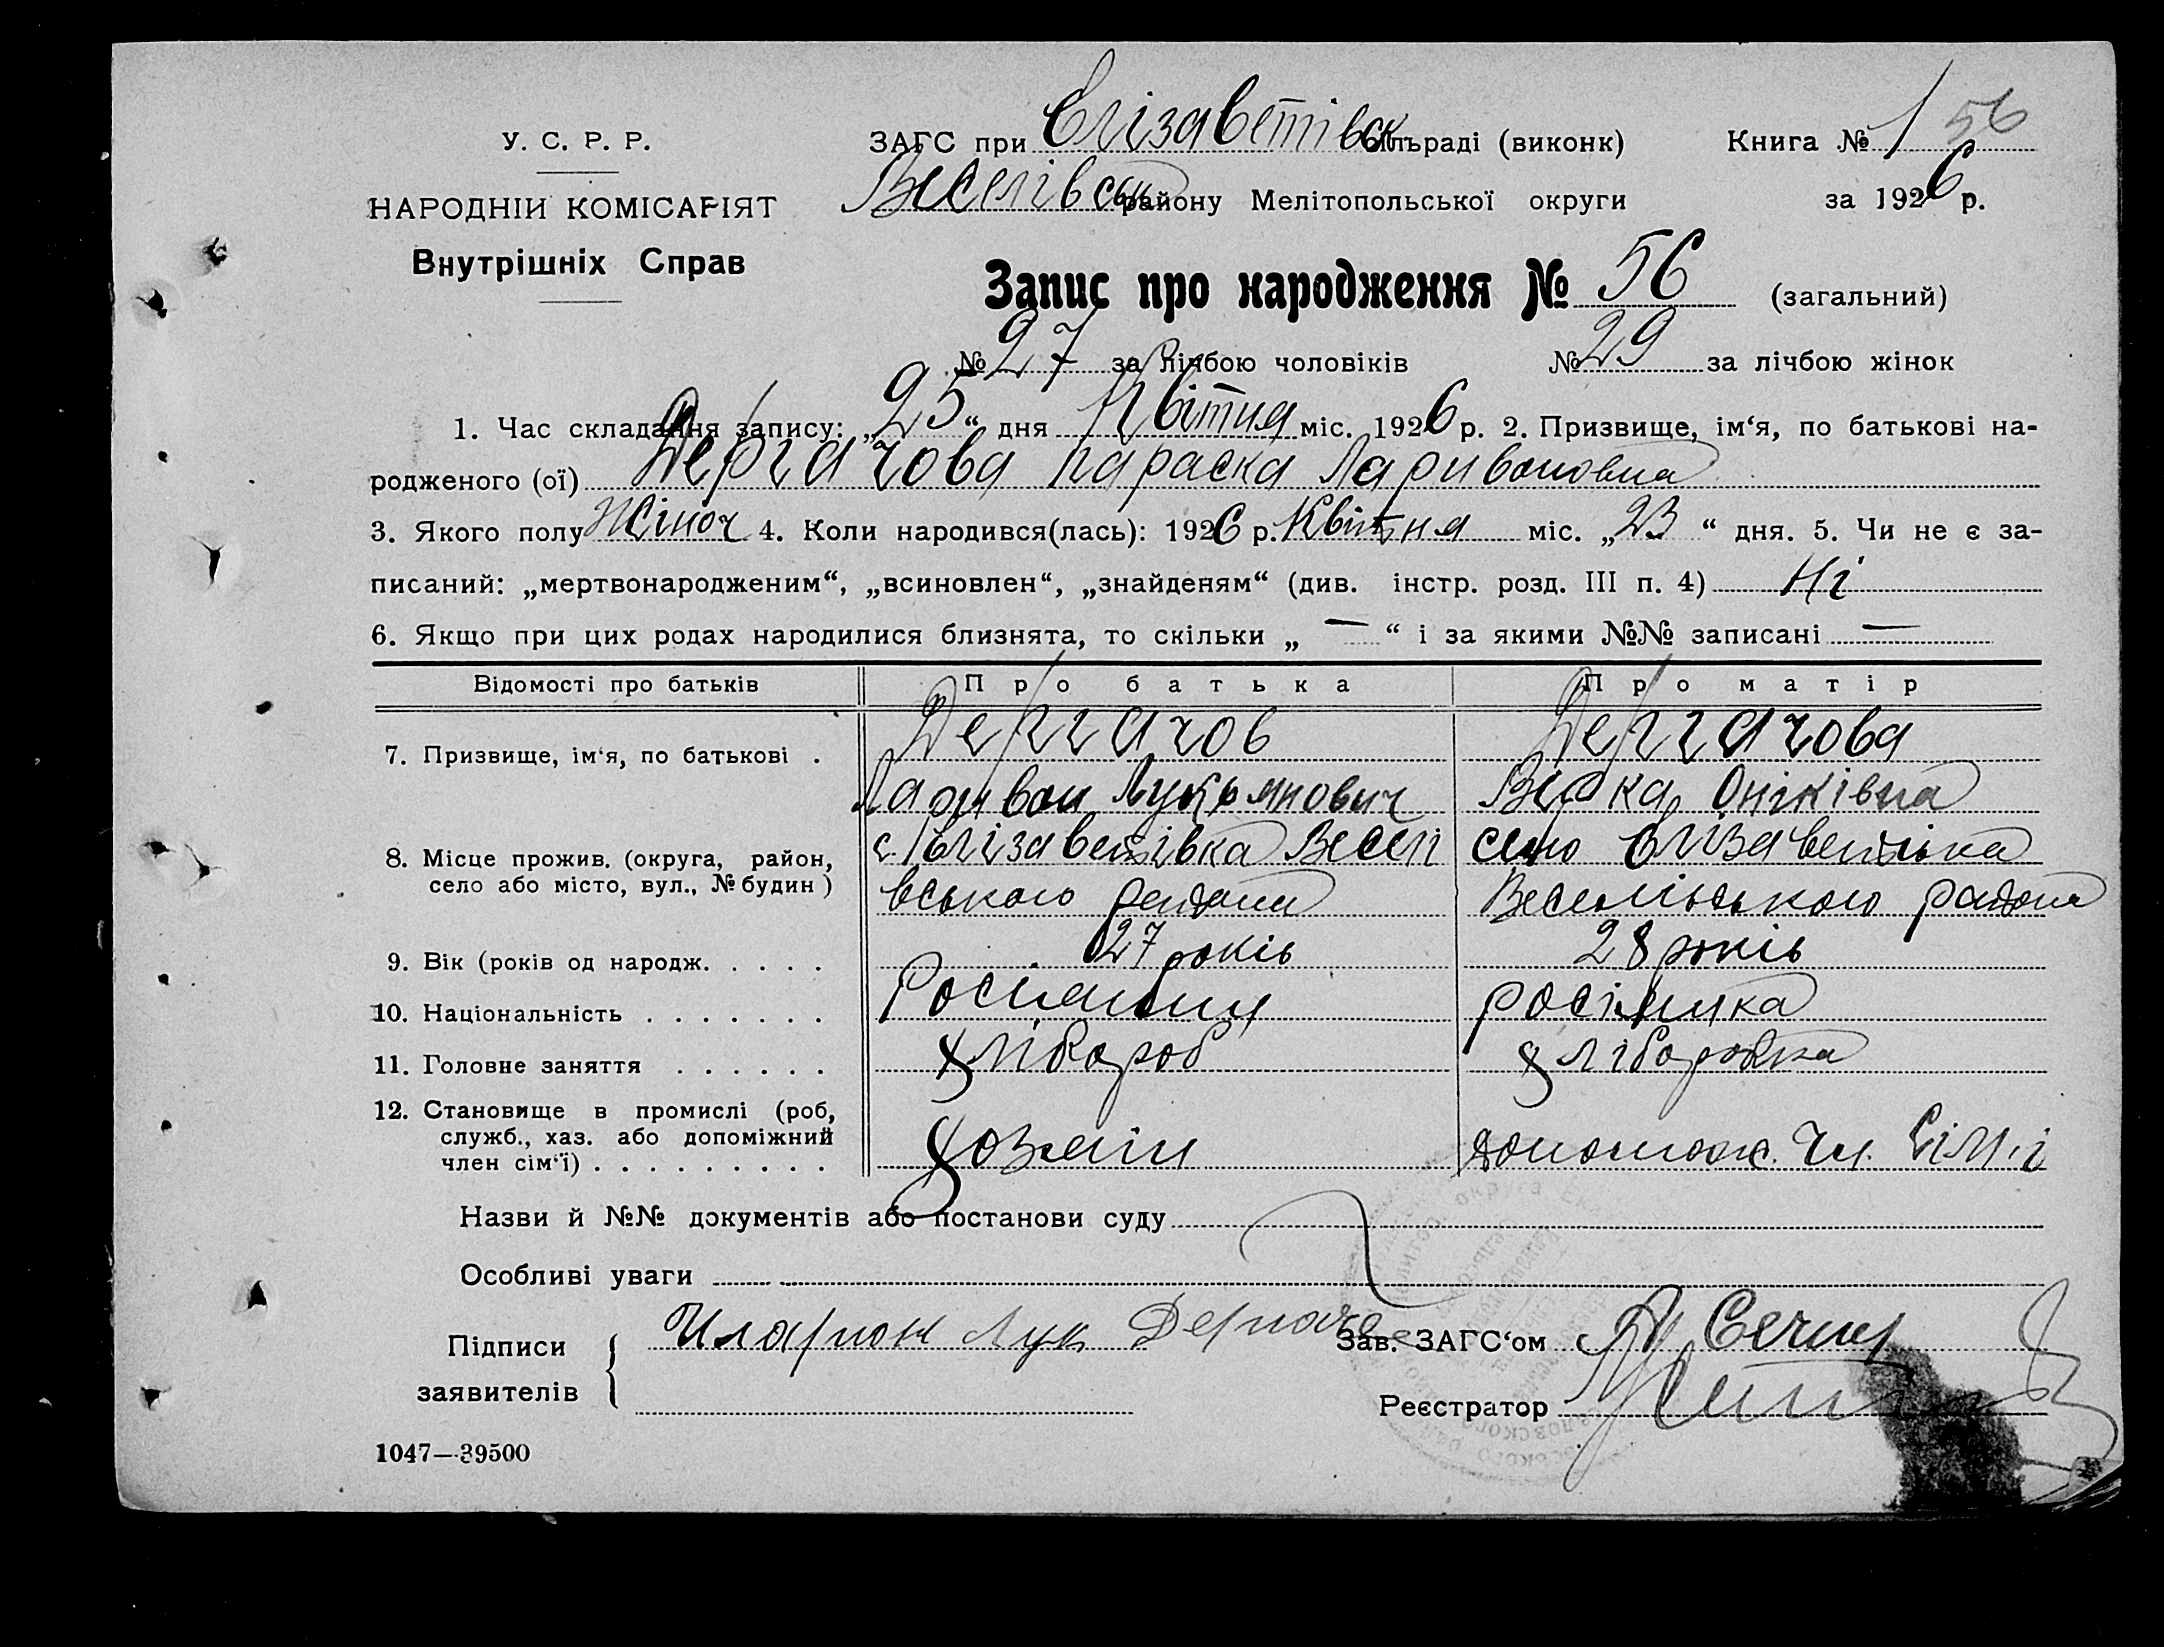 У. С. Р. Р.
НАРОДНІЙ КОМІСАРІЯТ
Внутрішніх Справ
ЗАГС при Єлізаветівськ сільраді (виконк) Книга № 1 56
Веселівськ району Мелітопольської округи за 1926 р.
Запис про народження № 56 (загальний)
№ 27 за лічбою чоловіків № 29 за лічбою жінок
1. Час складання запису: „25“ дня Квітня міс. 1926 р. 2. Призвище, ім‘я, по батькові на-
родженого (ої) Дергачова Параска Ларивоновна
3. Якого полу Жіноч 4. Коли народився(лась): 1926 р. Квітня міс. „23“ дня. 5. Чи не є за-
писаний: „мертвонародженим“, „всиновлен“, „знайденям“ (див. інстр. розд. III п. 4) Ні
6. Якщо при цих родах народилися близнята, то скільки „ — “ і за якими №№ записані —
Відомості про батьків Про батька Про матір
7. Призвище, ім‘я, по батькові . Дергачов Дергачова
Ларивон Лукьянович Вірка Онікієвна
8. Місце прожив. (округа, район, с. Єлізаветівка Веселі село Єлізаветівка
село або місто, вул., № будин) вського району Веселівського району
9. Вік (років од народж. . . . . 27 років 28 років
10. Національність . . . . . . . Росіянин росіянка
11. Головне заняття . . . . . . хлібороб хліборобка
12. Становище в промислі (роб,
служб., хаз. або допоміжний
член сім‘ї) . . . . . . . . . хозяїн допомож. чл. сім'ї
Назви й №№ документів або постанови суду
Особливі уваги
Підписи Иларион Лук Дергаче Зав. ЗАГС‘ом
заявителів Реєстратор
1047—39500